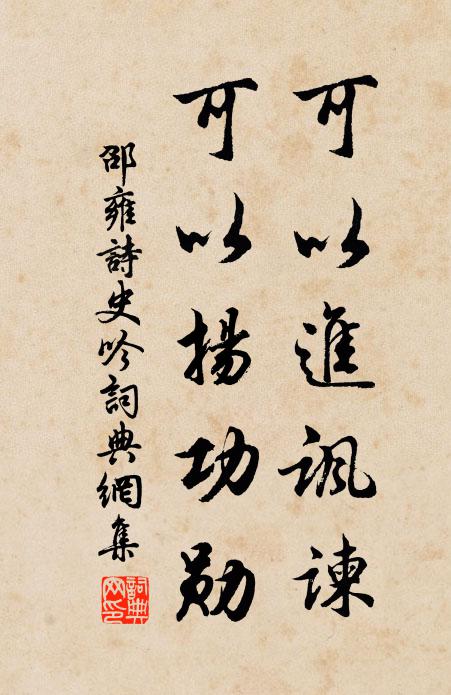 可以進諷諫
可以揚功勛
邵雍詩史吟詞典網集
詞典网印